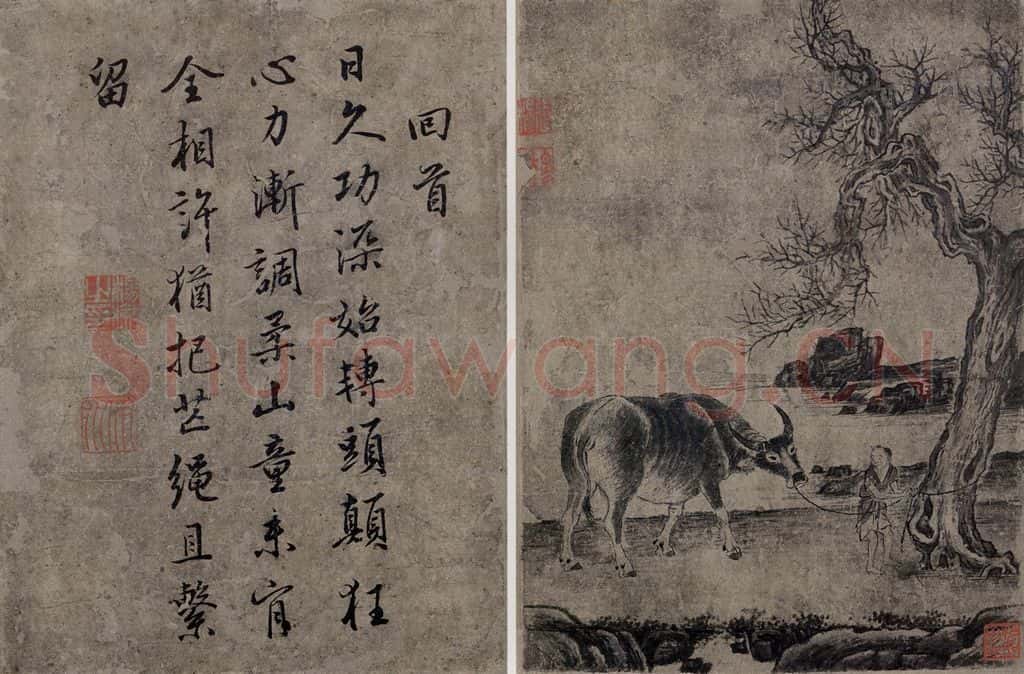 回首
日久功深始轉頭顛狂
心力漸調柔山童未肯
全相許猶把芒繩且繫
留
Shufawang.CN